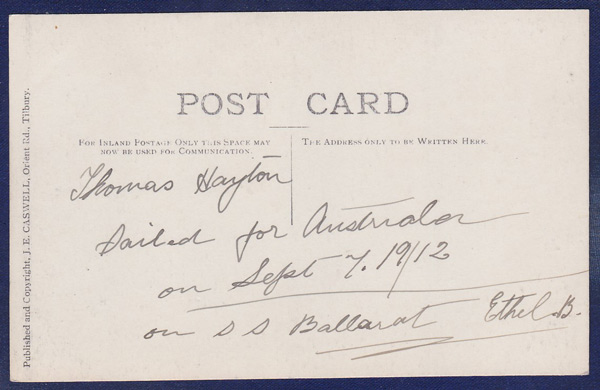 POST CARD
FOR INLAND POSTAGE ONLY THIS SPACE MAY
NOW BE USED FOR COMMUNICATION.
THE ADDRESS ONLY TO BE WRITTEN HERE.
Thomas Hayton
Sailed for Australia
on Sept 7. 1912
on S S Ballarat Ethel. B.
Published and Copyright, J. E. CASWELL, Orient Rd., Tilbury.